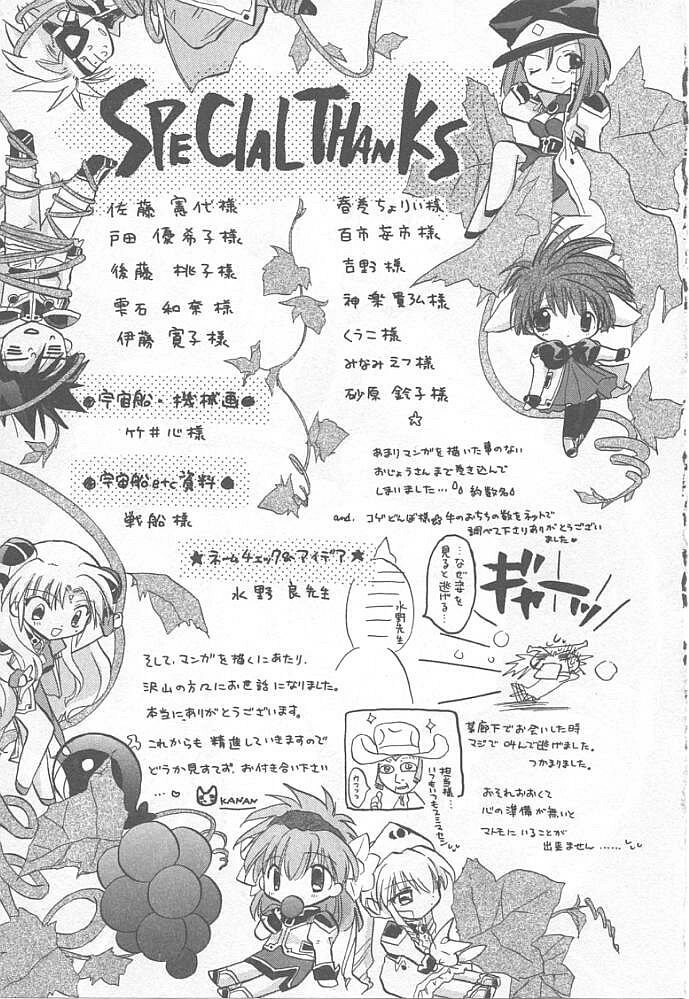 SPECIAL THANKS
佐藤 憲代様
戸田 優希子様
後藤 桃子様
雫石 和奈様
伊藤 寛子様
●宇宙船・機械画●
竹井心様
●宇宙船etc資料●
戦船様
★ネームチェック&アイデア★
水野良先生
春巻ちょりい様
百市 安市様
吉野様
神楽 貴弘様
くうこ様
みなみえつ様
砂原 鈴子様
☆
あまりマンガを描いた事のない
おじょうさんまで巻き込んで
しまいました…
約数名
and. コゲどんぼ様☆牛のおちちの数をネットで
調べて下さりありがとうござい
ました
…なぜ姿を
見ると逃げる…
水野先生
ギャーッ
某廊下でお会いした時
マジで叫んで逃げました。
つかまりました。
おそれおおくて
心の準備が無いと
マトモにいることが
出来ません……
そして、マンガを描くにあたり、
沢山の方々にお世話になりました。
本当にありがとうございます。
これからも精進していきますので
どうか見すてず、お付き合い下さい
…♡
KANAN
ウフフフ
担当様…
いつもいつもスミマセン